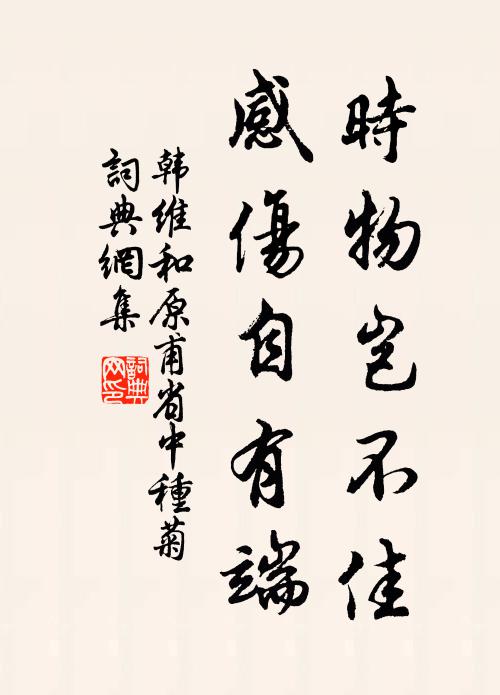 時物岂不佳
感傷自有端
韩维和原甫省中種菊
詞典網集
詞典
网印